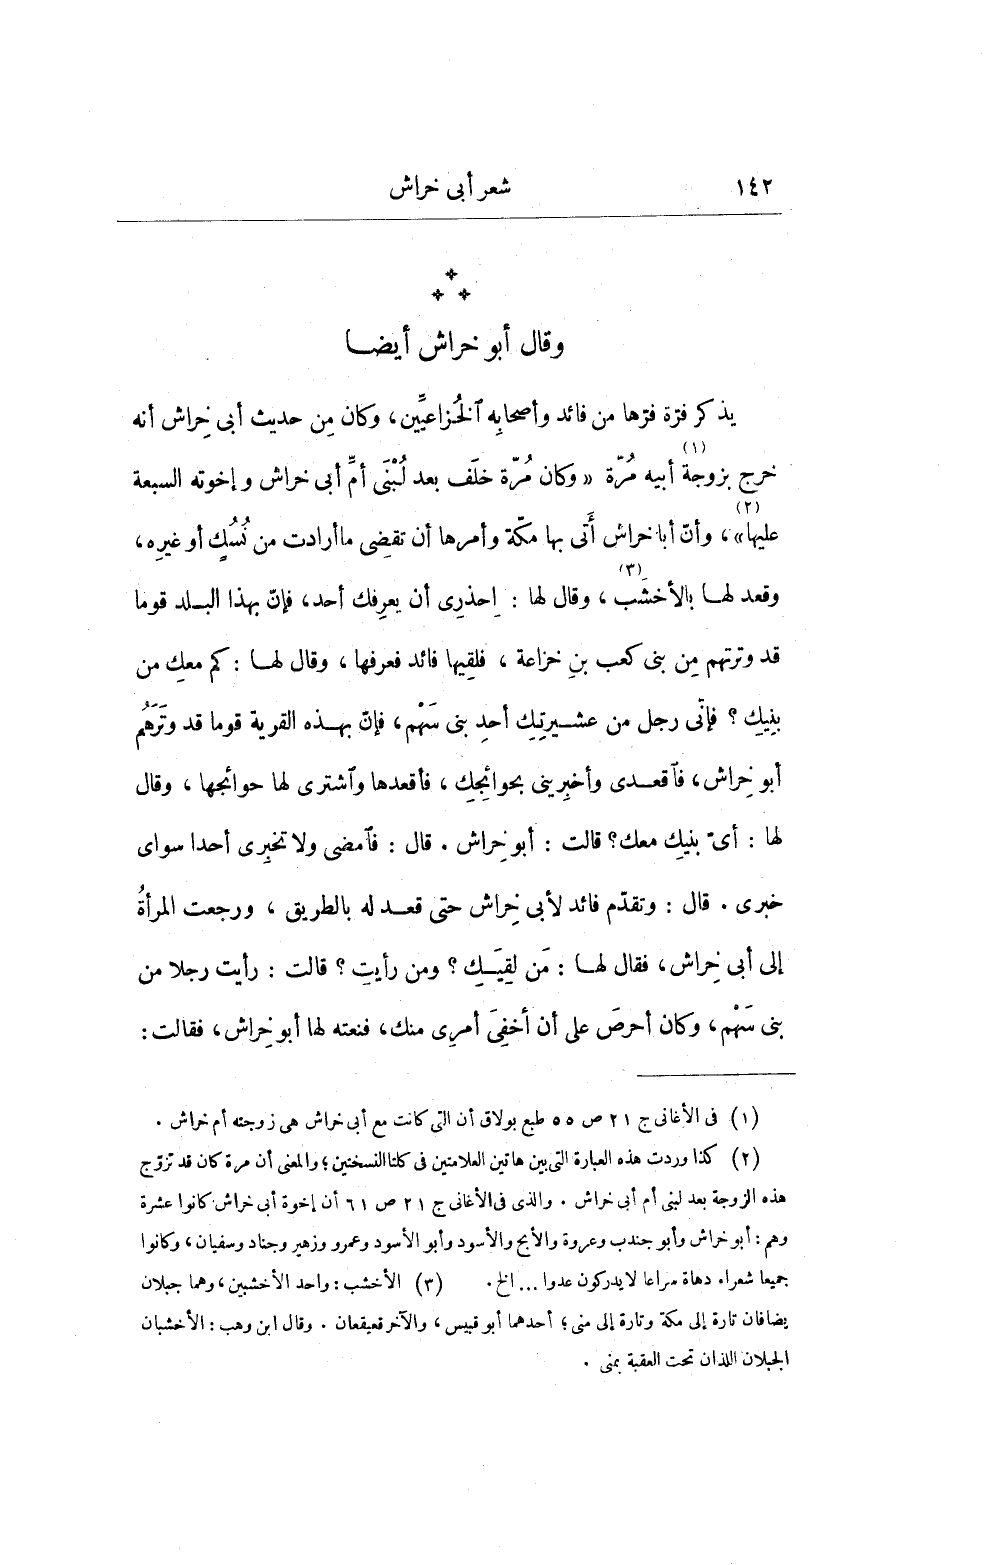 ١٤٢
شعر أبى خراش
وقال أبو خراش أيضا
يذكر فرّة فرّها من فائد وأصحابه ٱلخُزاعيِّين، وكان مِن حديث أبى خِراش أنه
(١)
خرج بزوجة أبيه مُرّة « وكان مُرّة خلَف بعد لُبْنَى أمِّ أبى خراش وإخوته السبعة
(٢)
عليها»، وأنّ أبا خراش أَتى بها مكّة وأمرها أن تقضِى ما أرادت من نُسُكٍ أو غيرِه،
(٣)
وقعد لها بالأخشَب، وقال لها : إحذرِى أن يعرِفك أحد، فإنّ بهذا البلد قوما
قد وترتهم مِن بنى كعب بنِ خزاعة ، فلقِيها فائد فعرفها ، وقال لها : كم معكِ من
بنِيكِ ؟ فإنّى رجل من عشيرتِكِ أحدِ بنى سَهْم، فإنّ بهذه القرية قوما قد وتَرَهُم
أبو خِراش، فٱقعدى وأخبِرينى بحوائِجِكِ ، فأقعدها وٱشترى لها حوائجها ، وقال
لها : أىّ بنيكِ معك؟ قالت : أبو خِراش . قال : فٱمضى ولا تخبِرى أحدا سواى
خبرى . قال : وتقدّم فائد لأبى خِراش حتى قعد له بالطريق ، ورجعت المرأةُ
إلى أبى خِراش، فقال لها : مَن لقِيَكِ ؟ ومن رأيتِ ؟ قالت : رأيت رجلا من
بنى سَهْم، وكان أحرصَ على أن أخفِىَ أمرِى منك، فنعته لها أبو خِراش، فقالت :
(١) فى الأغانى ج ٢١ ص ٥٥ طبع بولاق أن التى كانت مع أبى خراش هى زوجته أم خراش .
(٢) كذا وردت هذه العبارة التى بين هاتين العلامتين فى كلتا النسختين؛ والمعنى أن مرة كان قد تزوّج
هذه الزوجة بعد لبنى أم أبى خراش . والذى فى الأغانى ج ٢١ ص ٦١ أن إخوة أبى خراش كانوا عشرة
وهم : أبو خراش وأبو جندب وعروة والأبح والأسود وأبو الأسود وعمرو وزهير وجناد وسفيان، وكانوا
جميعا شعراء دهاة سراعا لا يدركون عدوا ... الخ . (٣) الأخشب : واحد الأخشبين، وهما جبلان
يضافان تارة إلى مكة وتارة إلى منى؛ أحدهما أبو قبيس، والآخر قعيقعان . وقال ابن وهب : الأخشبان
الجبلان اللذان تحت العقبة بمنى .